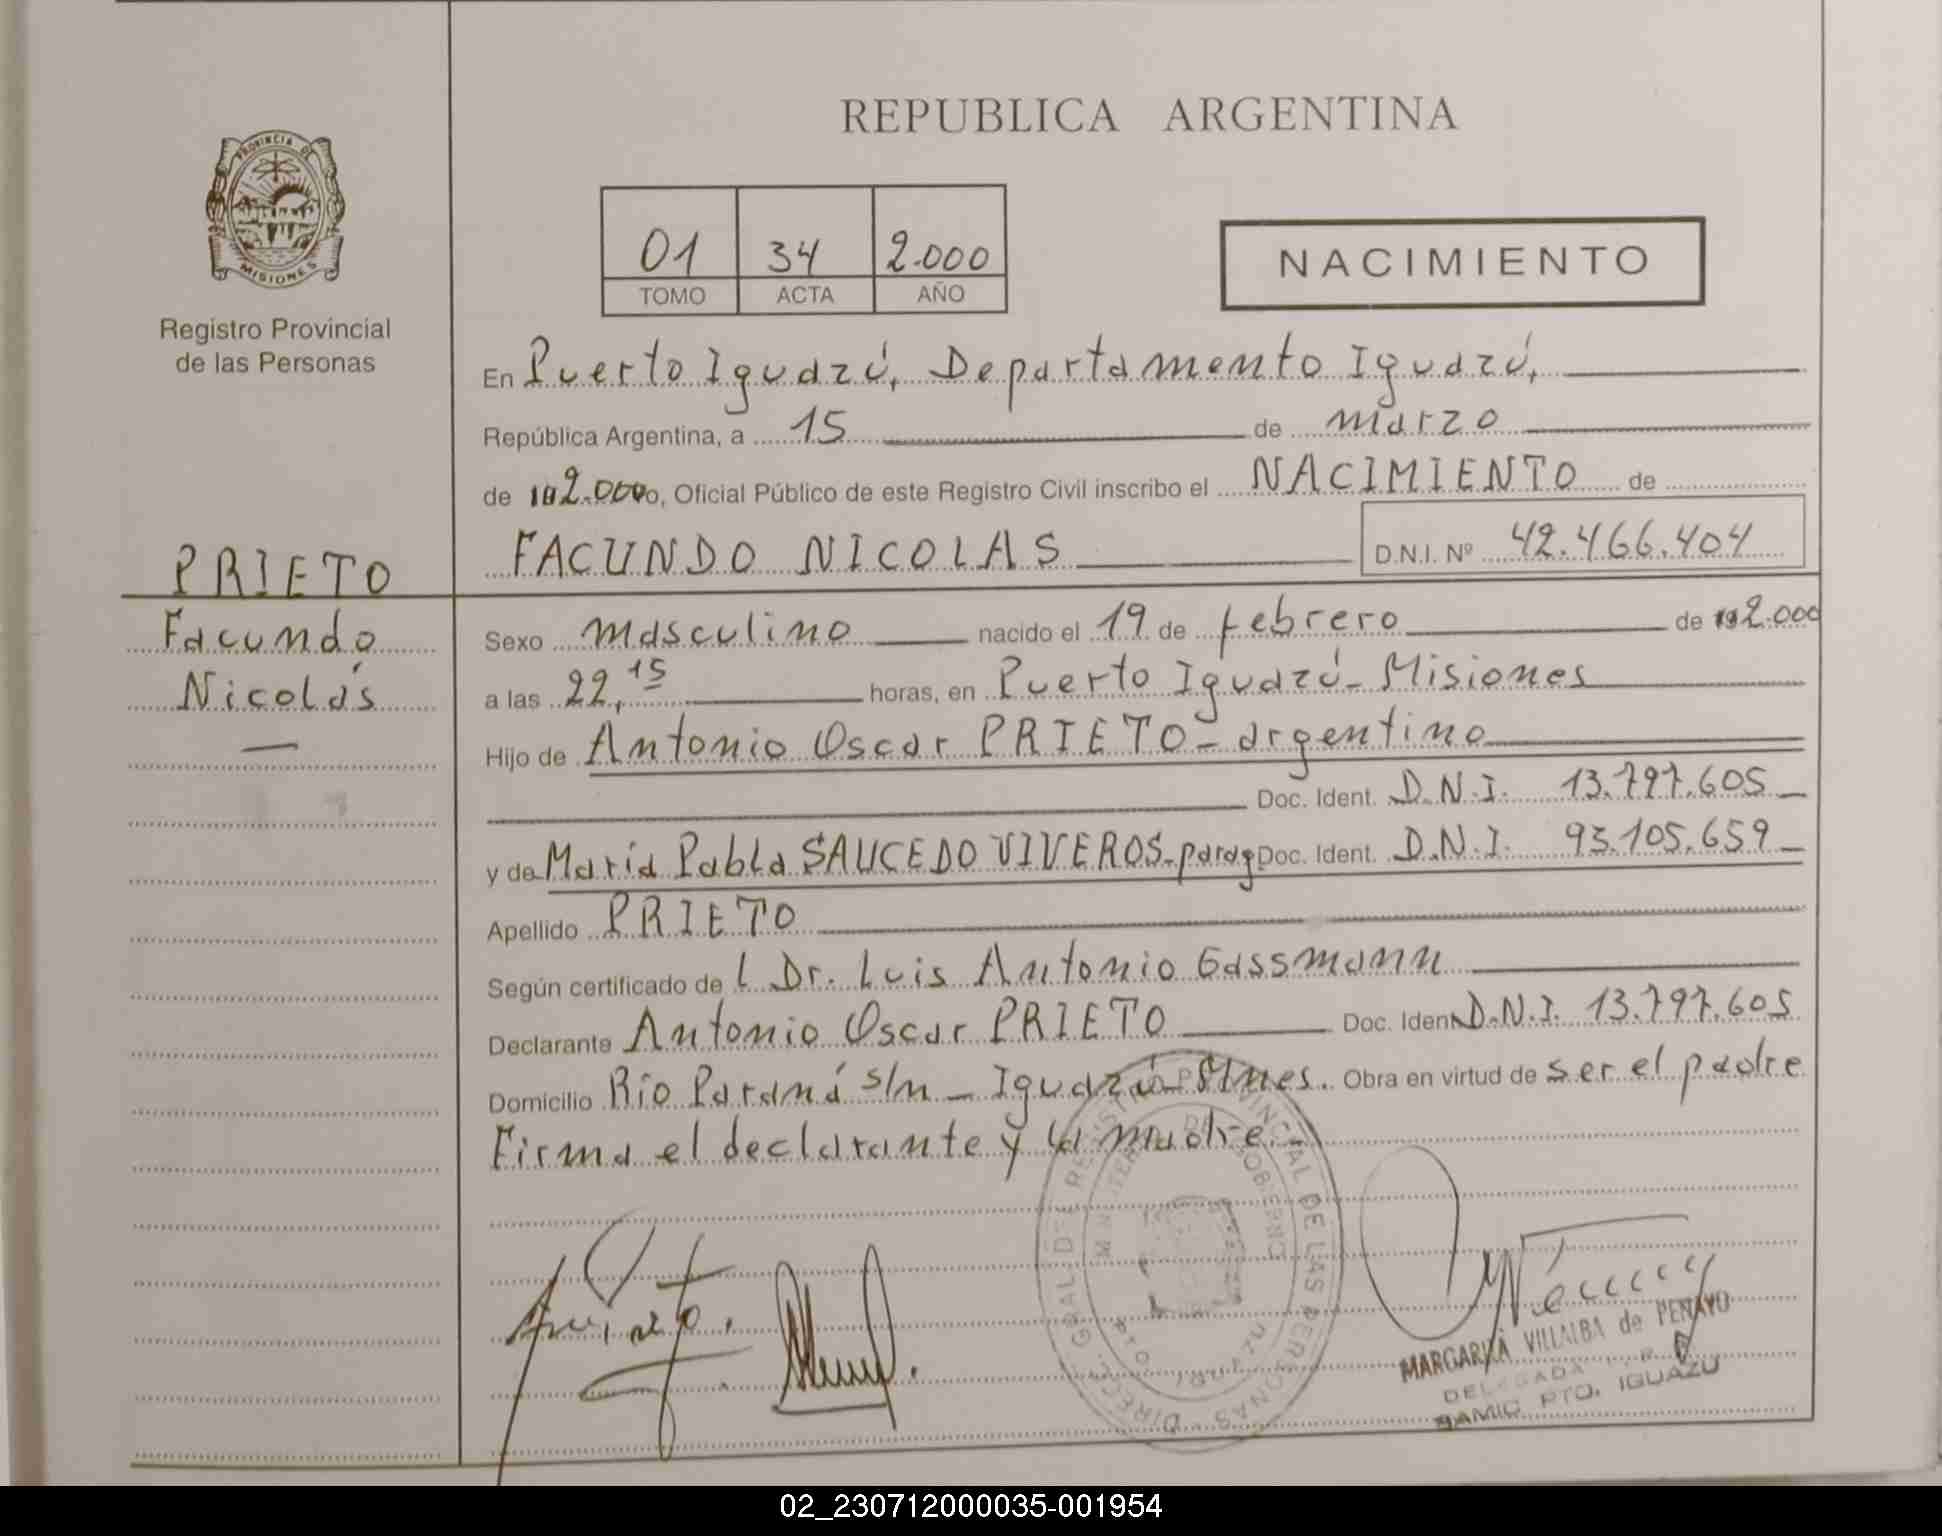 REPUBLICA ARGENTINA
PROVINCIA DE
MISIONES
Registro Provincial
de las Personas
01 34 2.000
TOMO ACTA AÑO
NACIMIENTO
En Puerto Iguazú, Departamento Iguazú,
República Argentina, a 15 de marzo
de 2.000, Oficial Público de este Registro Civil inscribo el NACIMIENTO de
FACUNDO NICOLAS D.N.I. Nº 42.466.404
PRIETO
Facundo
Nicolás
Sexo masculino nacido el 19 de febrero de 2.000
a las 22,15 horas, en Puerto Iguazú - Misiones
Hijo de Antonio Oscar PRIETO - argentino
Doc. Ident. D.N.I. 13.797.605
y de María Pabla SAUCEDO VIVEROS - parag Doc. Ident. D.N.I. 93.105.659
Apellido PRIETO
Según certificado de l Dr. Luis Antonio Gassmann
Declarante Antonio Oscar PRIETO Doc. Ident. D.N.I. 13.797.605
Domicilio Río Paraná s/n - Iguazú - Mnes. Obra en virtud de ser el padre
Firma el declarante y la madre
DIRECC. GRAL DE REGISTRO PROVINCIAL DE LAS PERSONAS
MINISTERIO DE GOBIERNO
MARGARITA VILLALBA de PENAYO
DELEGADA
PTO. IGUAZU
02_230712000035-001954